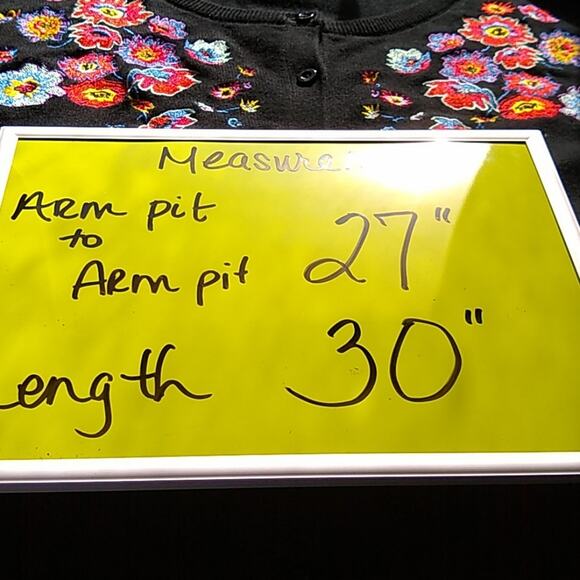 Measure
ARM pit
to
ARM pit 27"
Length 30"